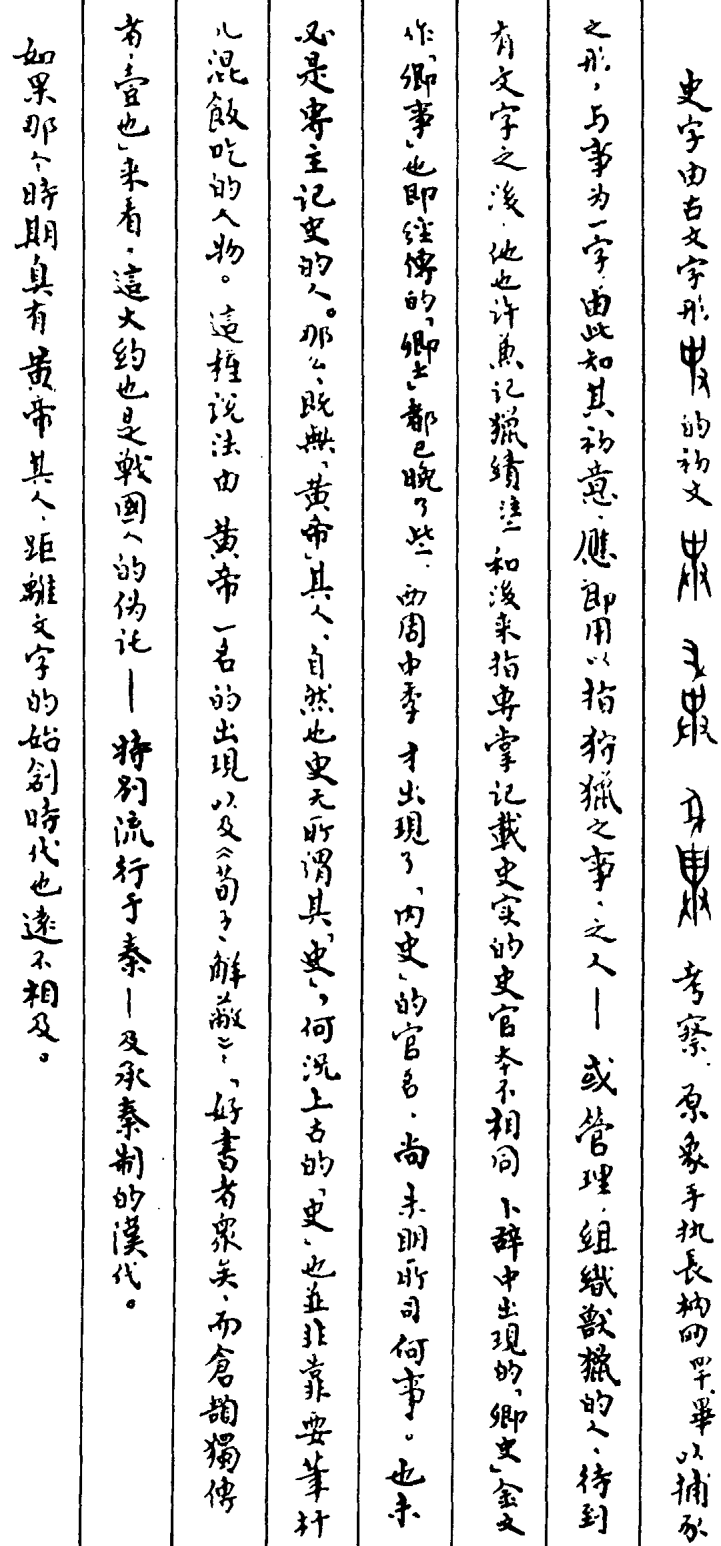 史字由古文字形的初文考察，原象手执長柄网罕、畢以捕豕
之形，与事为一字，由此知其初意，應即用以指狩獵之事、之人——或管理、組織獸獵的人，待到
有文字之後，他也许兼记獵績，和後来指專掌记載史实的史官本不相同。卜辞中出現的「卿史」金文
作「卿事」也即经傳的「卿士」都已晚了些，西周中季才出現了「内史」的官名，尚未明所司何事。也未
必是專主记史的人。那么，既無「黄帝」其人，自然也更无所谓其「史」，何況上古的「史」也並非靠耍筆杆
儿混飯吃的人物。這種説法由黄帝一名的出現以及《荀子、解蔽》：「好書者衆矣，而倉頡獨傳
者，壹也」来看，這大約也是戰國人的伪讬——特别流行于秦——及承秦制的漢代。
如果那个時期真有黄帝其人，距離文字的始創時代也遠不相及。